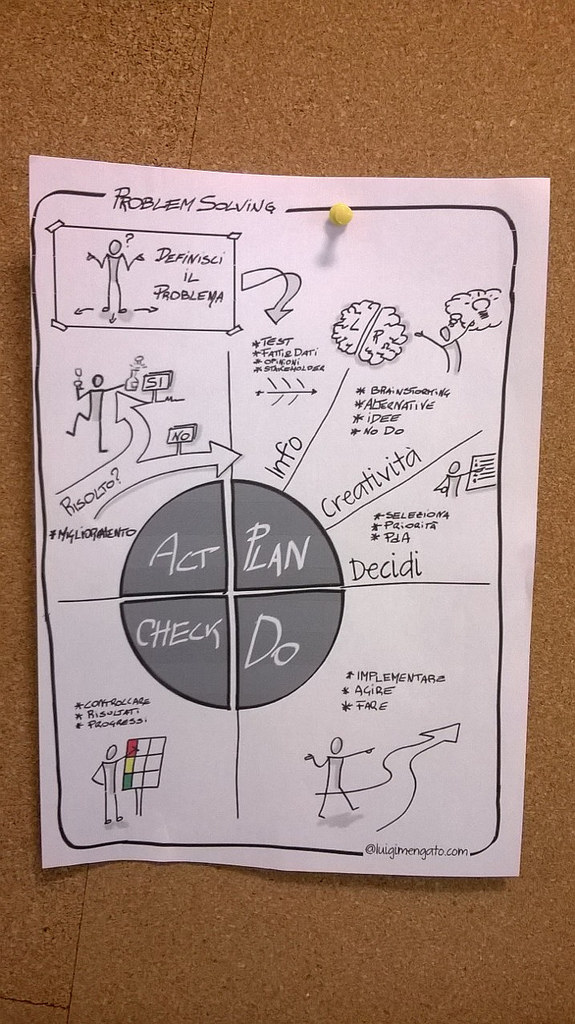 PROBLEM SOLVING
?
DEFINISCI
IL
PROBLEMA
* TEST
* FATTI E DATI
* OPINIONI
* STAKEHOLDER
L R
* BRAINSTORMING
* ALTERNATIVE
* IDEE
* NO DO
SI
NO
RISOLTO?
* MIGLIORAMENTO
Info
Creatività
* SELEZIONA
* PRIORITÀ
* PdA
Decidi
ACT
PLAN
CHECK
DO
* CONTROLLARE
* RISULTATI
* PROGRESSI
* IMPLEMENTARE
* AGIRE
* FARE
@luigimengato.com